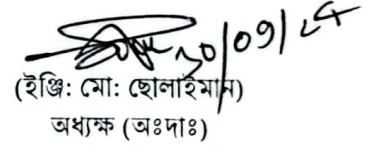 30/09/24
(ইঞ্জি: মো: ছোলাইমান)
অধ্যক্ষ (অঃদাঃ)